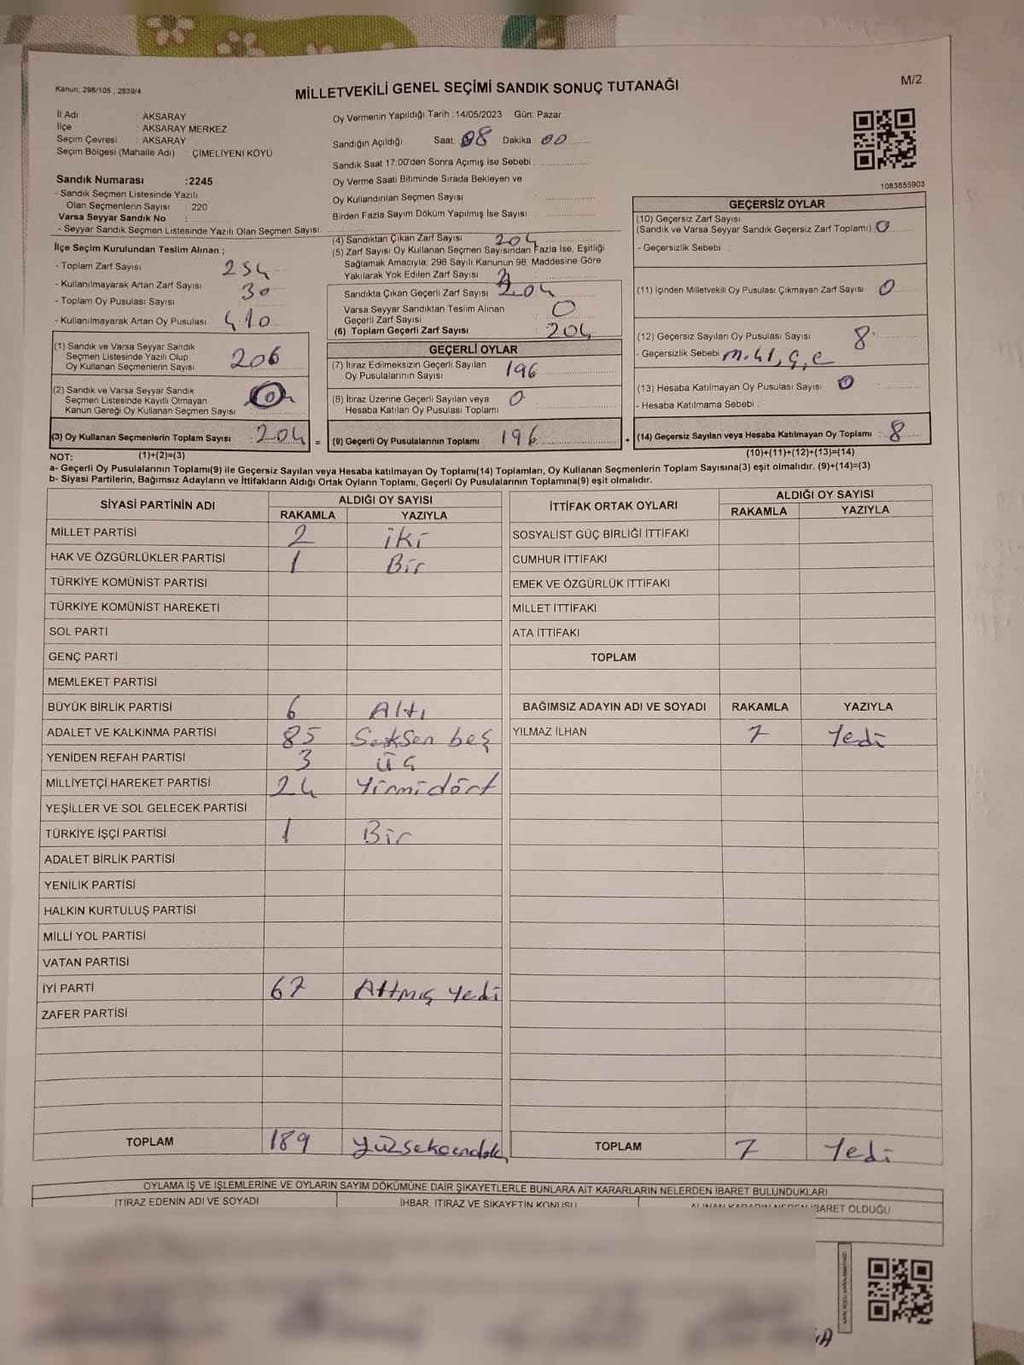 Kanun; 298/105 ; 2839/4
MİLLETVEKİLİ GENEL SEÇİMİ SANDIK SONUÇ TUTANAĞI
M/2
İl Adı : AKSARAY
İlçe : AKSARAY MERKEZ
Seçim Çevresi : AKSARAY
Seçim Bölgesi (Mahalle Adı) : ÇİMELİYENİ KÖYÜ
Sandık Numarası :2245
- Sandık Seçmen Listesinde Yazılı
Olan Seçmenlerin Sayısı : 220
Varsa Seyyar Sandık No :
- Seyyar Sandık Seçmen Listesinde Yazılı Olan Seçmen Sayısı:
Oy Vermenin Yapıldığı Tarih :14/05/2023 Gün: Pazar
Sandığın Açıldığı Saat: 08 Dakika 00
Sandık Saat 17:00'den Sonra Açımış İse Sebebi :
Oy Verme Saati Bitiminde Sırada Bekleyen ve
Oy Kullandırılan Seçmen Sayısı
Birden Fazla Sayım Döküm Yapılmış İse Sayısı
1083855903
İlçe Seçim Kurulundan Teslim Alınan ;
- Toplam Zarf Sayısı : 234
- Kullanılmayarak Artan Zarf Sayısı : 30
- Toplam Oy Pusulası Sayısı :
- Kullanılmayarak Artan Oy Pusulası : 410
(1) Sandık ve Varsa Seyyar Sandık
Seçmen Listesinde Yazılı Olup
Oy Kullanan Seçmenlerin Sayısı 206
(2) Sandık ve Varsa Seyyar Sandık
Seçmen Listesinde Kayıtlı Olmayan
Kanun Gereği Oy Kullanan Seçmen Sayısı 0
(3) Oy Kullanan Seçmenlerin Toplam Sayısı 204 =
(1)+(2)=(3)
(4) Sandıktan Çıkan Zarf Sayısı 204
(5) Zarf Sayısı Oy Kullanan Seçmen Sayısından Fazla İse, Eşitliği
Sağlamak Amacıyla; 298 Sayılı Kanunun 98. Maddesine Göre
Yakılarak Yok Edilen Zarf Sayısı :
Sandıkta Çıkan Geçerli Zarf Sayısı 204
Varsa Seyyar Sandıktan Teslim Alınan
Geçerli Zarf Sayısı 0
(6) Toplam Geçerli Zarf Sayısı 204
GEÇERLİ OYLAR
(7) İtiraz Edilmeksizin Geçerli Sayılan
Oy Pusulalarının Sayısı 196
(8) İtiraz Üzerine Geçerli Sayılan veya
Hesaba Katılan Oy Pusulası Toplamı 0
(9) Geçerli Oy Pusulalarının Toplamı 196 +
GEÇERSİZ OYLAR
(10) Geçersiz Zarf Sayısı
(Sandık ve Varsa Seyyar Sandık Geçersiz Zarf Toplamı) 0
- Geçersizlik Sebebi
(11) İçinden Milletvekili Oy Pusulası Çıkmayan Zarf Sayısı 0
(12) Geçersiz Sayılan Oy Pusulası Sayısı 8
- Geçersizlik Sebebi
(13) Hesaba Katılmayan Oy Pusulası Sayısı 0
- Hesaba Katılmama Sebebi :
(14) Geçersiz Sayılan veya Hesaba Katılmayan Oy Toplamı 8
(10)+(11)+(12)+(13)=(14)
NOT:
a- Geçerli Oy Pusulalarının Toplamı(9) ile Geçersiz Sayılan veya Hesaba katılmayan Oy Toplamı(14) Toplamları, Oy Kullanan Seçmenlerin Toplam Sayısına(3) eşit olmalıdır. (9)+(14)=(3)
b- Siyasi Partilerin, Bağımsız Adayların ve İttifakların Aldığı Ortak Oyların Toplamı, Geçerli Oy Pusulalarının Toplamına(9) eşit olmalıdır.
SİYASİ PARTİNİN ADI ALDIĞI OY SAYISI
RAKAMLA YAZIYLA
MİLLET PARTİSİ 2 iki
HAK VE ÖZGÜRLÜKLER PARTİSİ 1 Bir
TÜRKİYE KOMÜNİST PARTİSİ
TÜRKİYE KOMÜNİST HAREKETİ
SOL PARTİ
GENÇ PARTİ
MEMLEKET PARTİSİ
BÜYÜK BİRLİK PARTİSİ 6 Altı
ADALET VE KALKINMA PARTİSİ 85 Seksen beş
YENİDEN REFAH PARTİSİ 3 üç
MİLLİYETÇİ HAREKET PARTİSİ 24 Yirmidört
YEŞİLLER VE SOL GELECEK PARTİSİ
TÜRKİYE İŞÇİ PARTİSİ 1 Bir
ADALET BİRLİK PARTİSİ
YENİLİK PARTİSİ
HALKIN KURTULUŞ PARTİSİ
MİLLİ YOL PARTİSİ
VATAN PARTİSİ
İYİ PARTİ 67 Altmış Yedi
ZAFER PARTİSİ
TOPLAM 189
İTTİFAK ORTAK OYLARI ALDIĞI OY SAYISI
RAKAMLA YAZIYLA
SOSYALİST GÜÇ BİRLİĞİ İTTİFAKI
CUMHUR İTTİFAKI
EMEK VE ÖZGÜRLÜK İTTİFAKI
MİLLET İTTİFAKI
ATA İTTİFAKI
TOPLAM
BAĞIMSIZ ADAYIN ADI VE SOYADI RAKAMLA YAZIYLA
YILMAZ İLHAN 7 Yedi
TOPLAM 7 Yedi
OYLAMA İŞ VE İŞLEMLERİNE VE OYLARIN SAYIM DÖKÜMÜNE DAİR ŞİKAYETLERLE BUNLARA AİT KARARLARIN NELERDEN İBARET BULUNDUKLARI
İTİRAZ EDENİN ADI VE SOYADI
İHBAR, İTİRAZ VE ŞİKAYETİN KONUSU
İBARET OLDUĞU